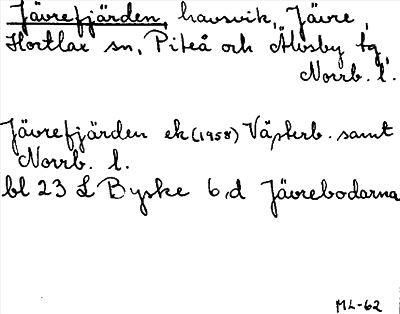 Jävrefjärden, havsvik, Jävre,
Hortlax sn, Piteå och Älvsby tg,
Norrb. l.
Jävrefjärden ek (1958) Västerb. samt
Norrb. l.
bl 23 L Byske 6,d Jävrebodarna
ML-62